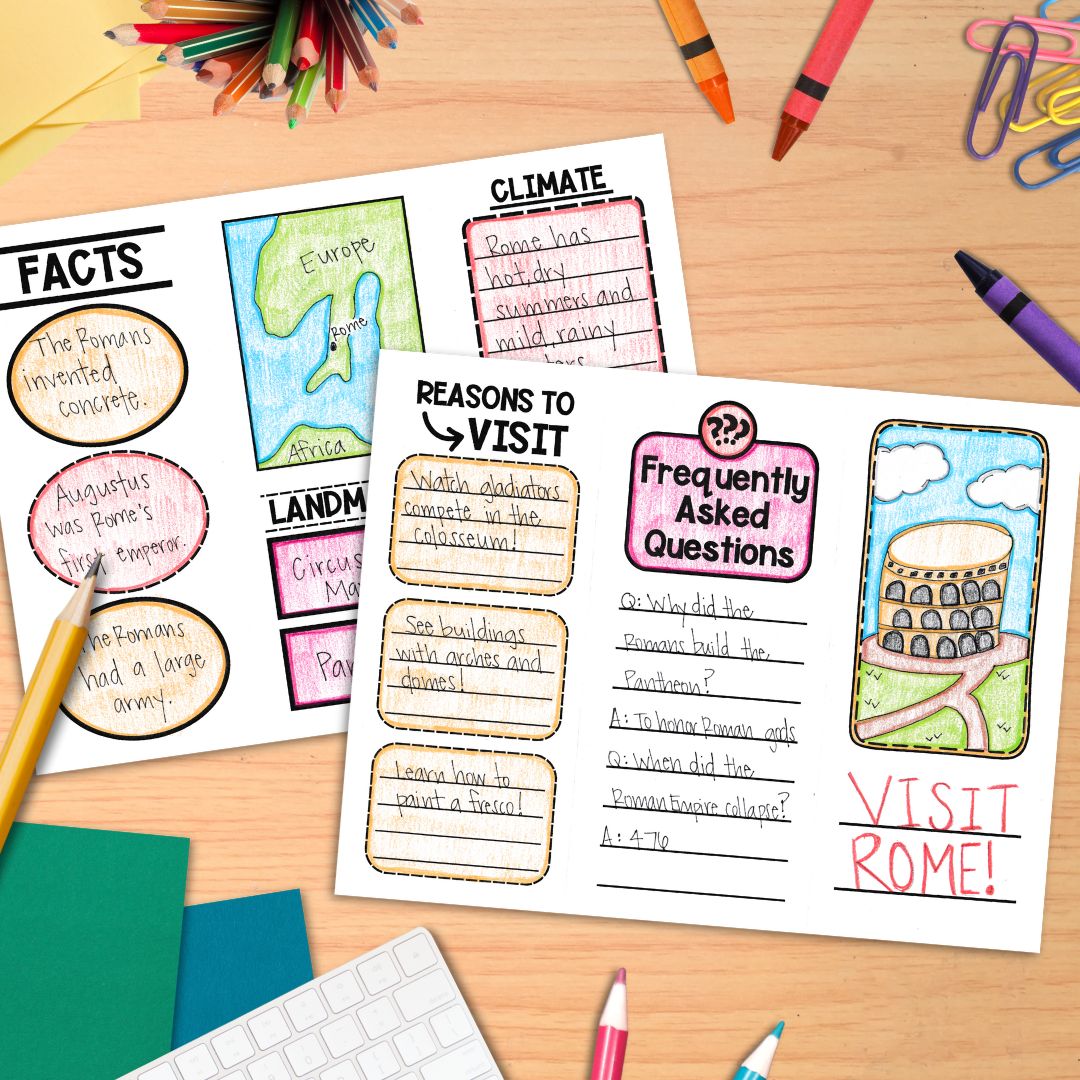 FACTS
The Romans
invented
concrete.
Augustus
was Rome's
first emperor.
The Romans
had a large
army.
Europe
Rome
Africa
LANDM
Circus
Ma
Par
CLIMATE
Rome has
hot, dry
summers and
mild, rainy
REASONS TO
VISIT
Watch gladiators
compete in the
colosseum!
See buildings
with arches and
domes!
Learn how to
paint a fresco!
???
Frequently
Asked
Questions
Q: Why did the
Romans build the
Pantheon?
A: To honor Roman gods
Q: When did the
Roman Empire collapse?
A: 476
VISIT
ROME!